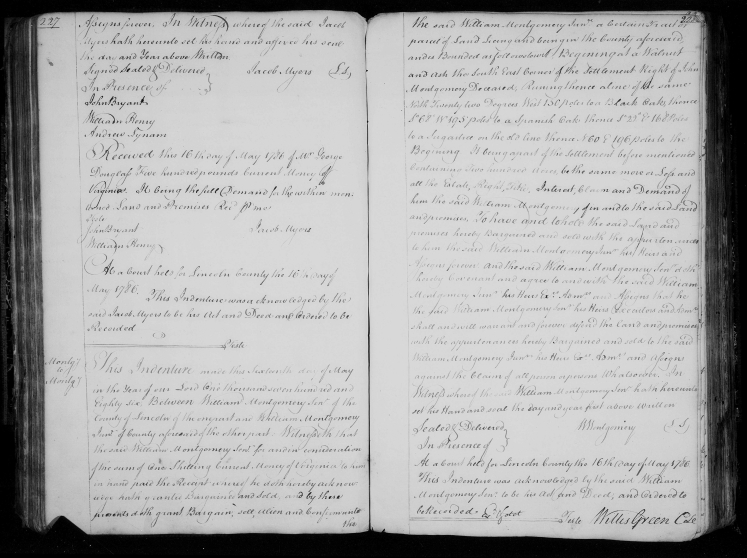 227
Assigns forever. In Witness whereof the said Jacob
Myers hath hereunto set his hand and affixed his seal
the day and Year above Written
Signed Sealed & Delivered } Jacob Myers LS
In Presence of
John Bryant
William Henry
Andrew Tynam
Received this 16th day of May 1786 of Mr. George
Douglass Five hundred pounds Current Money of
Virginia. It being the full Demand for the within men
tioned Land and Premises Rec'd pr me
Teste
John Bryant Jacob Myers
William Henry
At a Court held for Lincoln County the 16th day of
May 1786.
This Indenture was acknowledged by the
said Jacob Myers to be his Act and Deed and Ordered to be
Recorded
Teste
Montgy
to
Montgy
This Indenture made this Sixteenth day of May
in the Year of our Lord One thousand seven hundred and
Eighty Six Between William Montgomery Senr. of the
County of Lincoln of the one part and William Montgomery
Junr. of County aforesaid of the other part. Witnesseth that
the said William Montgomery Senr. for and in consideration
of the sum of One Shilling Current Money of Virginia to him
in hand paid the Receipt whereof he doth hereby acknow
ledge hath granted Bargained and Sold, and by these
presents doth grant Bargain, sell, alien and Confirm unto
the
the said William Montgomery Junr. a certain Tract or
parcel of Land Lying and being in the County aforesaid,
and is Bounded as followeth to wit Beginning at a Walnut
and ash the South East Corner of the Settlement Right of John
Montgomery Deceased, Runing thence a line of the same
North Twenty two Degrees West 150 poles to a Black Oak, thence
W 195 poles to a Spanish Oak thence 168 Poles
to a Sugartree on the old line thence N60 E 196 poles to the
Begining. It being a part of the Settlement before mentioned
Containing Two hundred Acres be the same more or Less and
all the Estate, Right, Title, Interest, Claim and Demand of
him the said William Montgomery, of in and to the said Land
and premises. To have and to hold the said Land and
premises hereby Bargained and sold with the appurtenances
to him the said William Montgomery Junr. his Heirs and
Assigns forever. And the said William Montgomery Senr. doth
hereby Covenant and agree to and with the said William
Montgomery Junr. his Heirs Exrs. Admrs. and Assigns that he
the said William Montgomery Senr. his Heirs Executors and Admrs.
shall and will warrant and forever defend the Land and premises
with the appurtenances hereby Bargained and sold to the said
William Montgomery Junr. his Heirs Exrs. Admrs. and Assigns
against the Claim of all person or persons Whatsoever. In
Witness whereof the said William Montgomery Senr. hath hereunto
set his Hand and seal the day and year first above written
Sealed & Delivered } W Montgomery LS
In Presence of
At a Court held for Lincoln County the 16th day of May 1786
This Indenture was acknowledged by the said William
Montgomery Senr. to be his Act, and Deed, and Ordered to
be Recorded.
Teste Willis Green C.L.C.